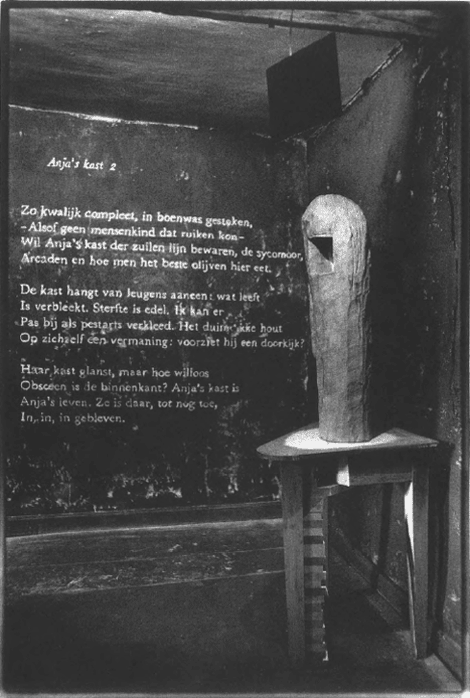 Anja's kast 2
Zo kwalijk compleet, in boenwas gestoken,
- Alsof geen mensenkind dat ruiken kon -
Wil Anja's kast der zuilen lijn bewaren, de sycomoor,
Arcaden en hoe men het beste olijven hier eet.
De kast hangt van leugens aaneen: wat leeft
Is verbleekt. Sterfte is edel. Ik kan er
Pas bij als pestarts verkleed. Het hout
Op zichzelf een vermaning: voorziet hij een doorkijk?
Haar kast glanst, maar hoe willoos
Obsceen is de binnenkant? Anja's kast is
Anja's leven. Ze is daar, tot nog toe,
In, in, in gebleven.